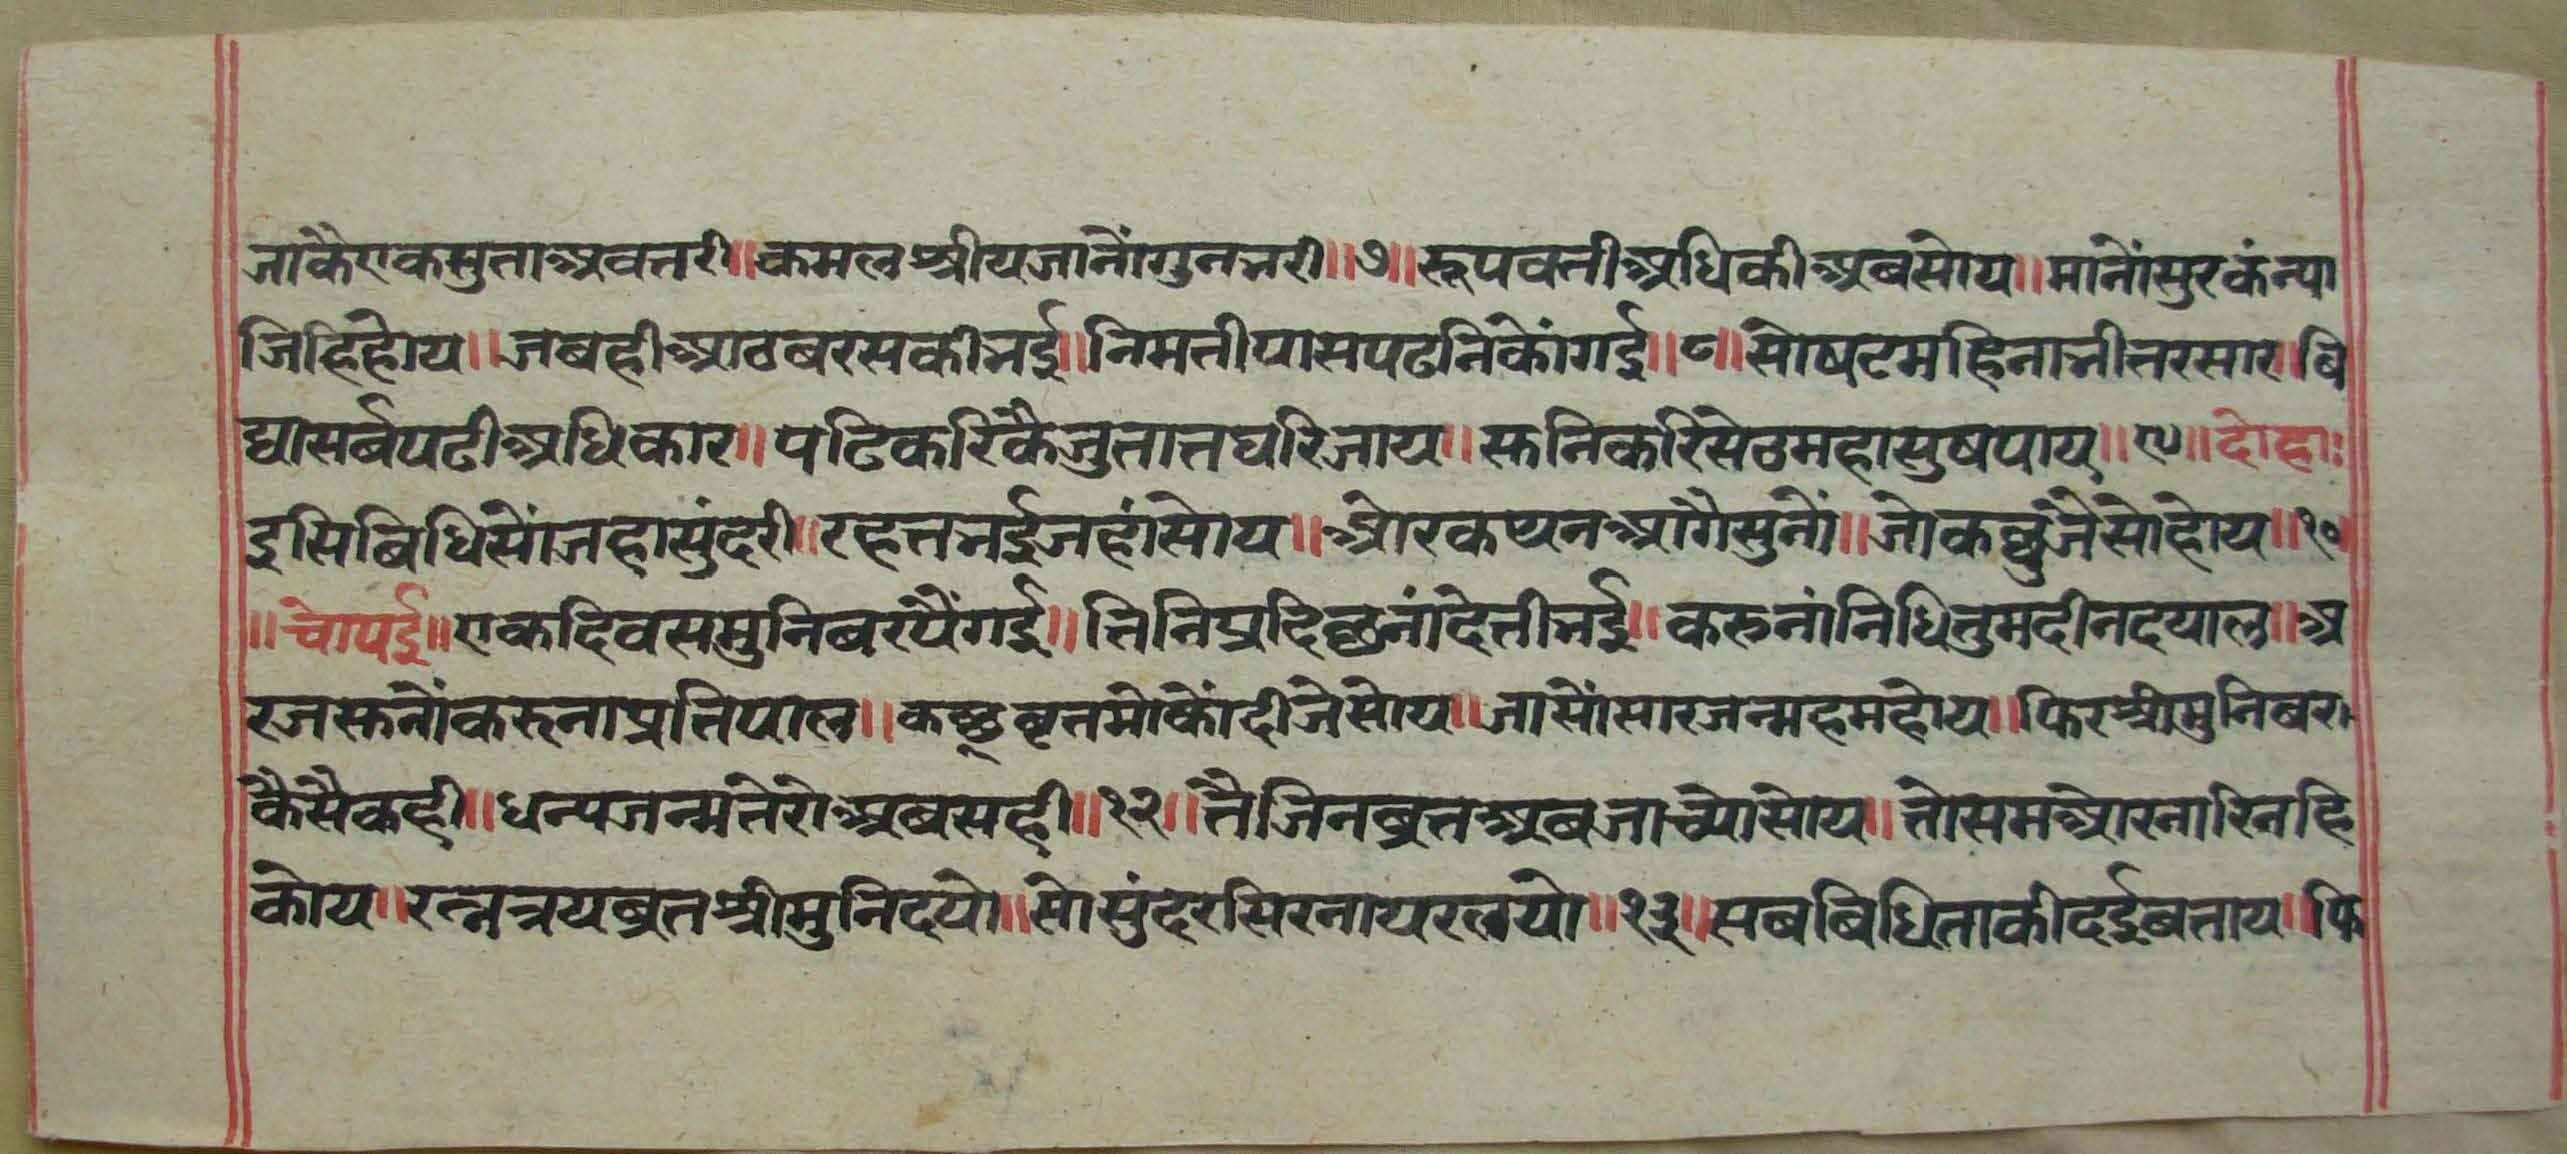 जाकैएकसुताअवतरी॥कमलश्रीयजानोंगुनभरी॥७॥रूपवतीअधिकीअबसोय॥मानोंसुरकंन्या
जिहिहोय॥जबहीआठबरसकीभई॥निमतीपासपढनिकोंगई॥८॥सोषटमहिनाभीतरसार॥बि
द्यासर्बपढीअधिकार॥पढिकरिकैजुतातघरिजाय॥सुनिकरिसेठमहासुषपाय॥९॥दोहाः
इसिबिधिसोंजहासुंदरी॥रहतभईजहांसोय॥ओरकथनआगैसुनों॥जोकछुजैसोहोय॥१०
॥चोपई॥एकदिवसमुनिबरपैंगई॥तिनिप्रदिछनांदेतीभई॥करुनांनिधितुमदीनदयाल॥अ
रजसुनोंकरुनाप्रतिपाल॥कछूबृतमोकोंदीजेसोय॥जासोंसारजन्महमहोय॥फिरश्रीमुनिबरा
कैसैकही॥धन्यजन्मतेरोअबसही॥१२॥तैजिनब्रतअबजाच्योसोय॥तोसमओरनारिनहि
कोय॥रत्नत्रयब्रतश्रीमुनिदयो॥सोसुंदरसिरनायरलयो॥१३॥सबबिधिताकीदईबताय॥फि